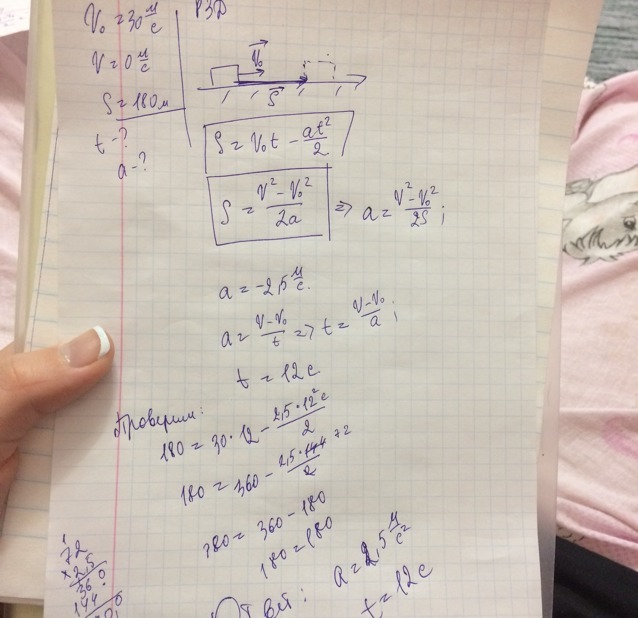 V₀ = 30 м/с
V = 0 м/с
S = 180 м
t - ?
a - ?
РЗД
V₀
S
S = V₀t - at²/2
S = (V² - V₀²)/2a => a = (V² - V₀²)/2S ;
a = -2,5 м/с.
a = (V - V₀)/t => t = (V - V₀)/a ;
t = 12 с
Проверим:
180 = 30 · 12 - (2,5 · 12² с)/2
180 = 360 - (2,5 · 144)/2 72
180 = 360 - 180
180 = 180
1
72
× 2,5
360
144
Ответ: a = 2,5 м/с²
t = 12 с